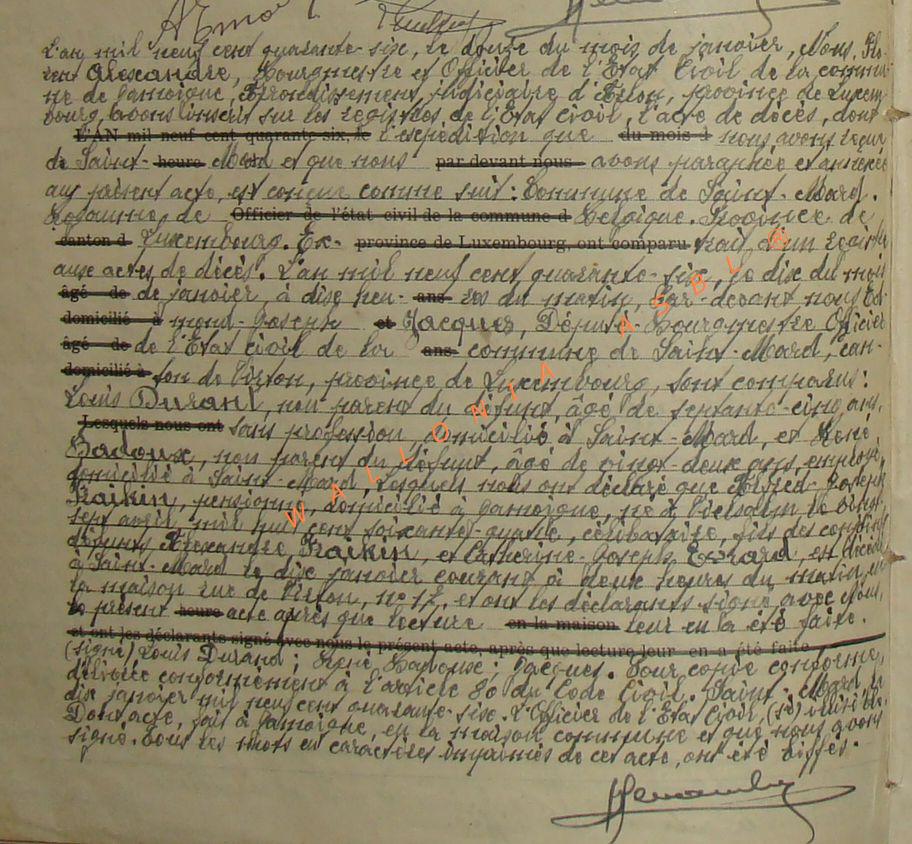 L'an mil neuf cent quarante-six, le douze du mois de janvier, Nous, Flo-
rent Alexandre, Bourgmestre et Officier de l'Etat Civil de la commu-
ne de Jamoigne, Arrondissement judiciaire d'Arlon, province de Luxem-
bourg, avons inscrit sur les registres de l'Etat Civil, l'acte de décès, dont
L'AN mil neuf cent quarante-six, le l'expédition que du mois d nous avons reçue
de Saint- heure Mard et que nous par devant nous avons paraphée et annexée
au présent acte, est conçue comme suit: Commune de Saint-Mard.
Royaume de Officier de l'état civil de la commune d Belgique. Province de
canton d Luxembourg. Ex- province de Luxembourg, ont comparu trait d'un registre
aux actes de décès. L'an mil neuf cent quarante-six, le dix du mois
âgé de de janvier, à dix heu- ans res du matin, par-devant nous Ed-
domicilié à mond-Joseph et Jacques, Député-Bourgmestre Officier
âgé de de l'Etat civil de la ans commune de Saint-Mard, can-
domicilié à ton de Virton, province de Luxembourg, sont comparus:
Louis Durand, non parent du défunt, âgé de septante-cinq ans,
Lesquels nous ont sans profession, domicilié à Saint-Mard, et René
Badoux, non parent du défunt, âgé de vingt-deux ans, employé,
domicilié à Saint-Mard, lesquels nous ont déclaré que Joseph
Fraikin, pensionné, domicilié à Jamoigne, né à Vielsalm le vingt-
sept avril mil huit cent soixante-quatre, célibataire, fils des conjoints
défunts Alexandre Fraikin, et Catherine-Joseph Evrard, est décédé
à Saint-Mard le dix janvier courant à deux heures du matin, en
la maison rue de Virton, n° 17, et ont les déclarants signé avec Nous,
le présent heure acte après que lecture en la maison leur en la été faite.
et ont les déclarants signé avec nous le présent acte, après que lecture leur en a été faite
(signé) Louis Durand; René Badoux; Jacques. Pour copie conforme,
délivrée conformément à l'article 80 du Code Civil. Saint-Mard le
dix janvier mil neuf cent quarante-six. L'Officier de l'Etat Civil, (sé)
Dont acte, fait à Jamoigne, en la maison commune et que nous avons
signé. Tous les mots en caractères imprimés de cet acte, ont été biffés.
WALLONIA ASBL